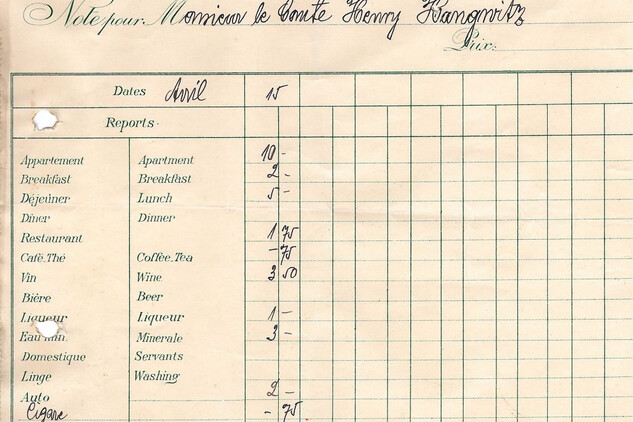 Note pour Monsieur le Comte Henry Haugwitz
Prix:
Dates Avril 15
Reports.
Appartement Apartment 10 -
Breakfast Breakfast 2 -
Déjeuner Lunch 5 -
Dîner Dinner
Restaurant 1 75
Café.Thé Coffee.Tea - 75
Vin Wine 3 50
Bière Beer
Liqueur Liqueur 1 -
Eau min. Minerale 3 -
Domestique Servants
Linge Washing
Auto 2 -
Cigare - 75